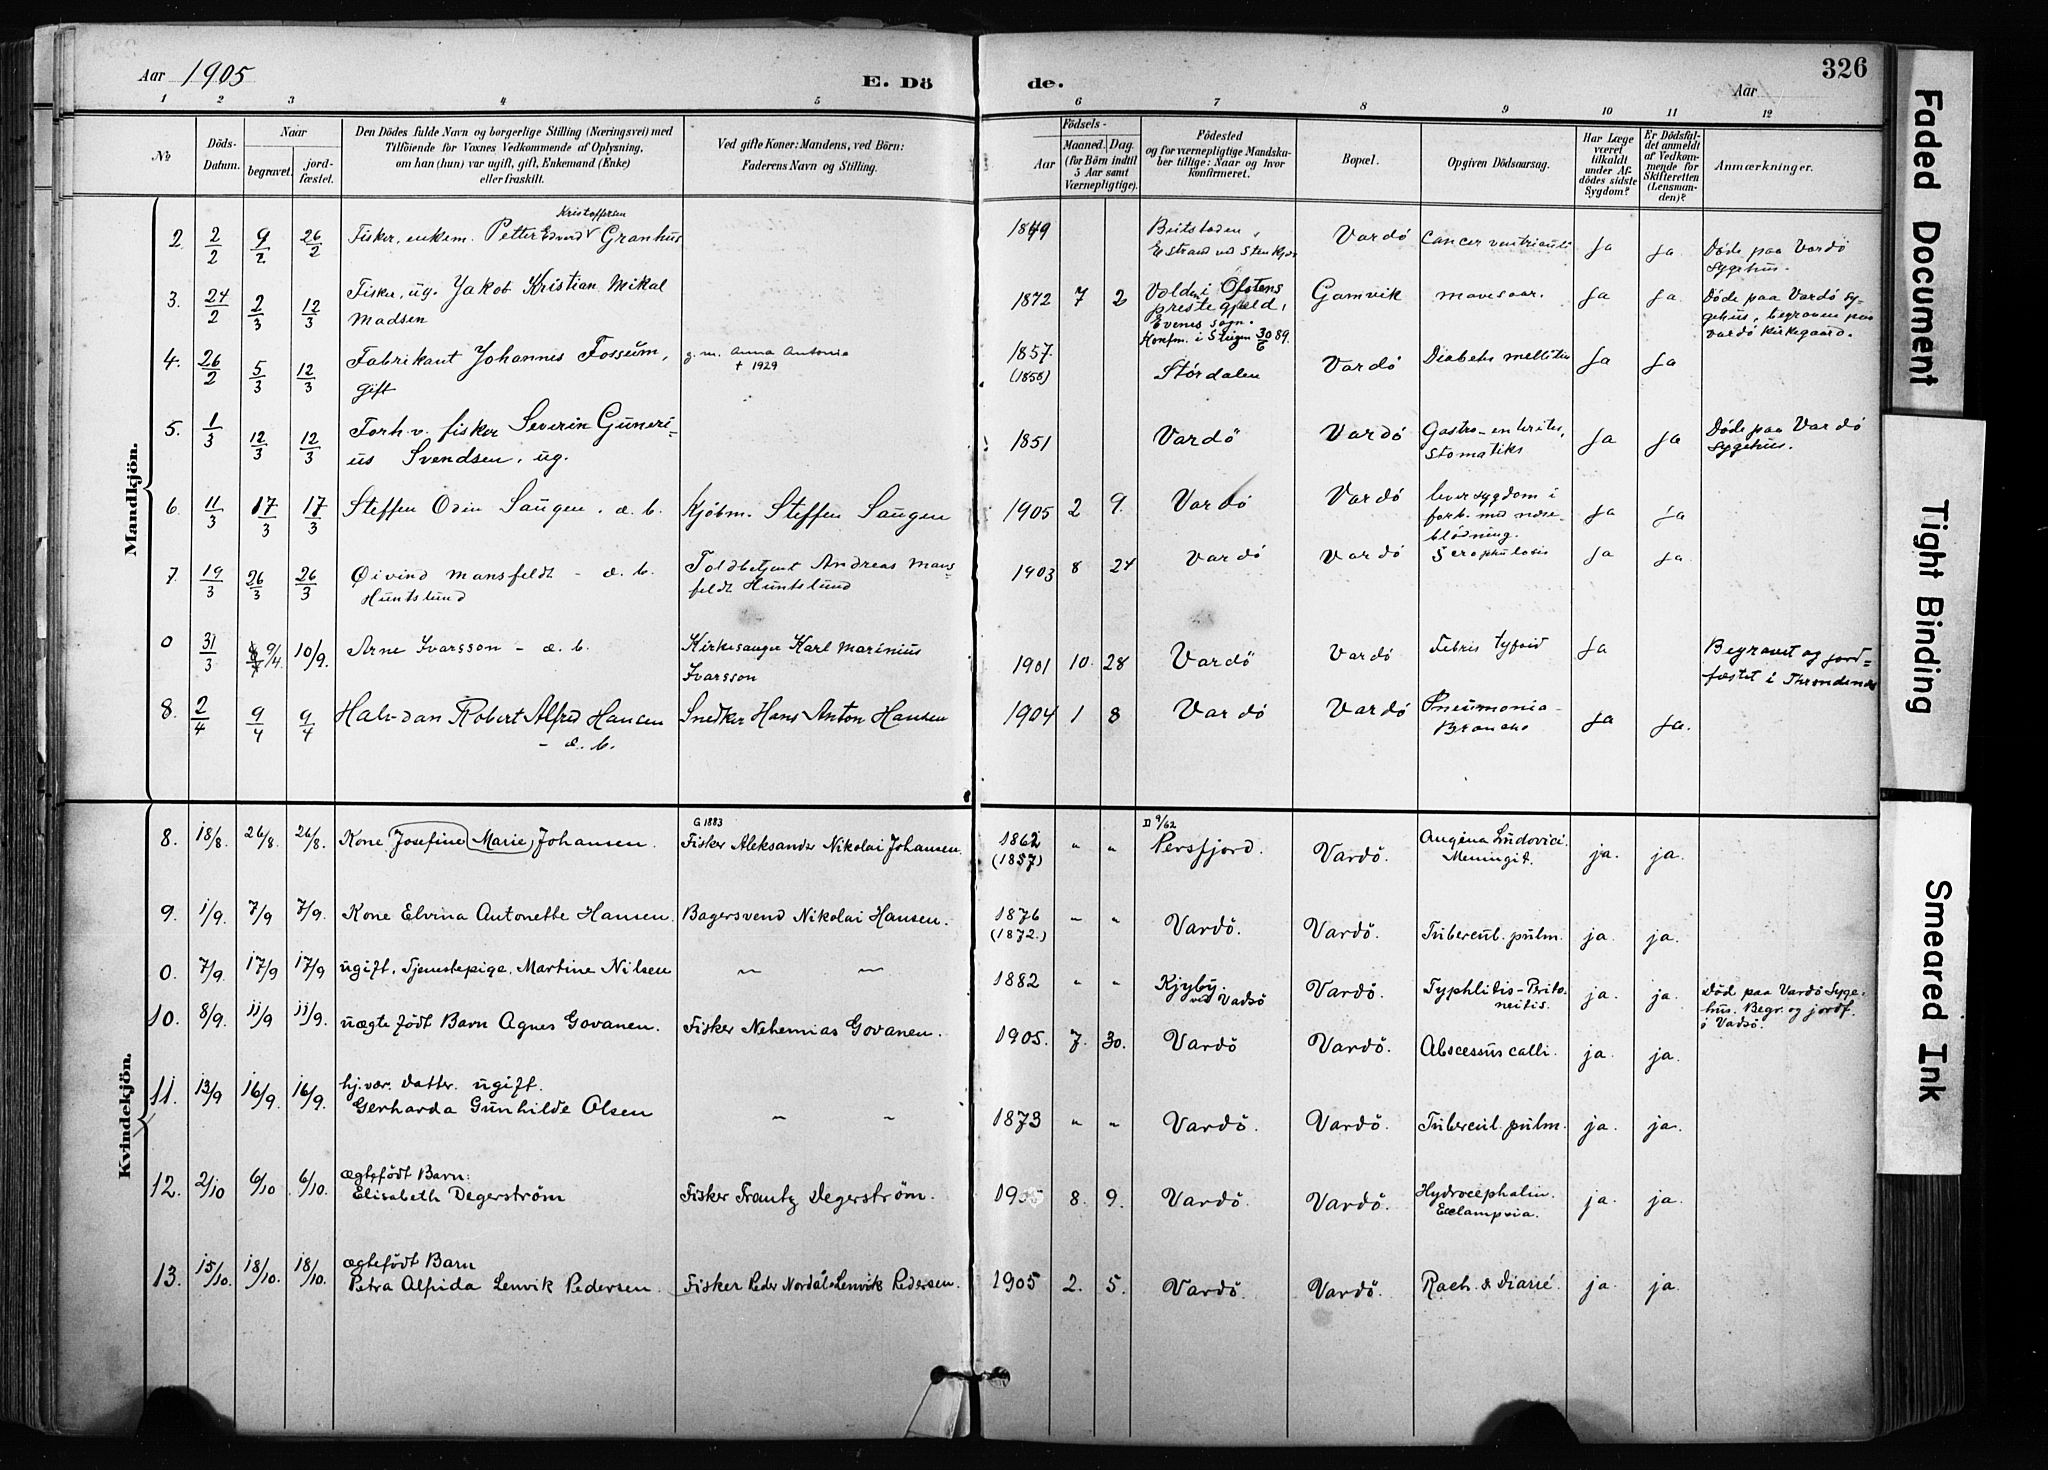 Aar 1905
E. Döde.
Aar
326
1 2 3 4 5 6 7 8 9 10 11 12
No
Döds-Datum.
Naar
begravet.
jordfæstet.
Den Dödes fulde Navn og borgerlige Stilling (Næringsvei) med
Tilföiende for Voxnes Vedkommende af Oplysning,
om han (hun) var ugift, gift, Enkemand (Enke)
eller fraskilt.
Ved gifte Koner: Mandens, ved Börn:
Faderens Navn og Stilling.
Födsels-
Aar
Maaned. Dag.
(for Börn indtil
5 Aar samt
Værnepligtige).
Födested
og for værnepligtige Mandskaber tillige: Naar og hvor
konfirmeret.
Bopæl.
Opgiven Dödsaarsag.
Har Læge
været
tilkaldt
under Afdödes sidste
Sygdom?
Er Dödsfaldet anmeldt
af Vedkommende for
Skifteretten
(Lensmanden)?
Anmærkninger.
Mandkjön.
2. 2/2 9/2 26/2 Fisker, enkem. Petter Edvard Kristoffersen Granhus 1849 Beitstaden, Estrand ved Stenkjær Vardö Cancer ventriculi Ja Ja. Döde paa Vardö Sygehus.
3. 24/2 2/3 12/3 Fisker, ug. Jakob Kristian Mikal Madsen 1872 7 2 Volden i Ofotens prestegjeld, Evenes sogn. Konfm. i Steigen 30/6 89. Gamvik mavesaar. Ja Ja. Döde paa Vardö Sygehus, begraven paa Vardö Kirkegaard.
4. 26/2 5/3 12/3 Fabrikant Johannes Fossum, gift g.m. Anna Antonia † 1929 1857. (1858) Stördalen Vardö Diabetes mellitus Ja Ja
5. 1/3 12/3 12/3 Forh.v. fisker Severin Gunerius Svendsen, ug. 1851 Vardö Vardö Gastro-enterites, Stomatiks Ja Ja Döde paa Vardö Sygehus.
6. 11/3 17/3 17/3 Steffen Odin Saugen. æ. b. Kjöbm. Steffen Saugen 1905 2 9. Vardö Vardö leversygdom i forb. med næseblödning. Ja Ja
7. 19/3 26/3 26/3 Øivind Mansfeldt Huntslund – æ. b. Toldbetjent Andreas Mansfeldt Huntslund 1903 8 24 Vardö Vardö Scrophulosis Ja Ja.
0 31/3 9/4 10/9. Arne Ivarsson – æ. b. Kirkesanger Karl Marinius Ivarsson 1901 10. 28 Vardö Vardö Febris tyfoid Ja Begravet og jordfæstet i Throndenes
8. 2/4 9/4 9/4 Halvdan Robert Alfred Hansen – æ. b. Snedker Hans Anton Hansen 1904 1 8 Vardö Vardö Pneumonia-Broncho Ja Ja.
Kvindekjön.
8. 18/8. 26/8. 26/8. Kone Josefine Marie Johansen. G 1883 Fisker Aleksander Nikolai Johansen. 1862 (1857) " " D 9/62 Persfjord. Vardö. Angina Ludovici. Meningit. ja. ja.
9. 1/9. 7/9 7/9. Kone Elvina Antonette Hansen. Bagersvend Nikolai Hansen. 1876 (1872.) " " Vardö. Vardö. Tubercul. pulm. ja. ja.
0. 7/9. 17/9 17/9 ugift. Tjenestepige. Martine Nilsen ~ ~ 1882 " " Kjyby. ved Vadsö Vardö. Typhlitis-Peritoneitis. ja. ja. Död paa Vardö Sygehus. Begr. og jordf. i Vadsö.
10. 8/9. 11/9 11/9. uægte födt Barn Agnes Govanen. Fisker Nehemias Govanen. 1905. 7. 30. Vardö Vardö. Abscessus calli. ja. ja.
11. 13/9 16/9. 16/9. hj.vær. Datter. ugift. Gerharda Gunhilde Olsen ~ ~ 1873 " " Vardö. Vardö. Tubercul. pulm. ja. ja.
12. 2/10 6/10 6/10. ægtefödt Barn: Elisabeth Degerström Fisker Frantz Degerström. 1905 8. 9. Vardö. Vardö. Hydrocephalin. Eclampsia. ja. ja.
13. 15/10. 18/10. 18/10. ægtefödt Barn Petra Alfida Lenvik Pedersen Fisker Peder Nordal Lenvik Pedersen. 1905 2. 5. Vardö. Vardö. Rach. & Diarré. ja. ja.
Faded Document
Tight Binding
Smeared Ink